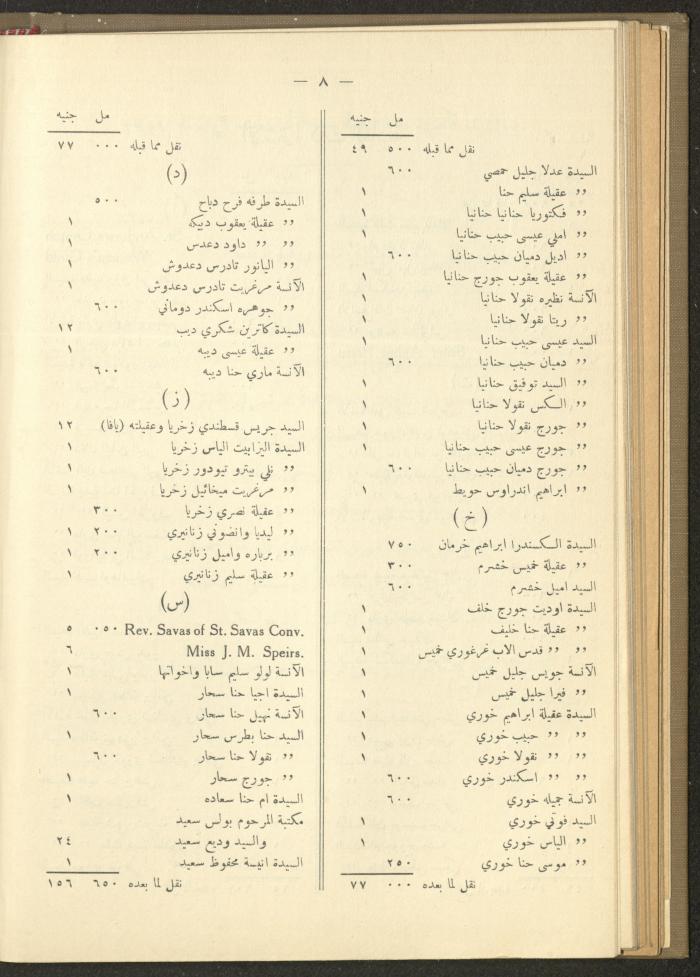 — ٨ —
مل جنيه
نقل مما قبله ٥٠٠ ٤٩
السيدة عدلا جليل حمصي ٦٠٠
,, عقيلة سليم حنا ١
,, فكتوريا حنانيا حنانيا ١
,, املي عيسى حبيب حنانيا ١
,, اديل دميان حبيب حنانيا ٦٠٠
,, عقيلة يعقوب جورج حنانيا ١
الآنسة نظيره نقولا حنانيا ١
,, ريتا نقولا حنانيا ١
السيد عيسى حبيب حنانيا ١
,, دميان حبيب حنانيا ٦٠٠
,, السيد توفيق حنانيا ١
,, الكس نقولا حنانيا ١
,, جورج نقولا حنانيا ١
,, جورج عيسى حبيب حنانيا ١
,, جورج دميان حبيب حنانيا ٦٠٠
,, ابراهيم اندراوس حويط ١
(خ)
السيدة الكسندرا ابراهيم خرمان ٧٥٠
,, عقيلة خميس خشرم ٣٠٠
السيد اميل خشرم ٦٠٠
السيدة اوديت جورج خلف ١
,, عقيلة حنا خليف ١
,, ,, قدس الاب غرغوري خميس ١
الآنسة جويس جليل خميس ١
,, فيرا جليل خميس ١
السيدة عقيلة ابراهيم خوري ١
,, ,, حبيب خوري ١
,, ,, نقولا خوري ١
,, ,, اسكندر خوري ٦٠٠
الآنسة جميله خوري ٦٠٠
السيد فوتي خوري ١
,, الياس خوري ١
,, موسى حنا خوري ٢٥٠
نقل لما بعده ٠٠٠ ٧٧
مل جنيه
نقل مما قبله ٠٠٠ ٧٧
(د)
السيدة طرفه فرح دباح ٥٠٠
,, عقيلة يعقوب دبيكه ١
,, ,, داود دعدس ١
,, اليانور تادرس دعدوش ١
الآنسة مرغريت تادرس دعدوش ١
,, جوهره اسكندر دوماني ٦٠٠
السيدة كاترين شكري ديب ١٢
,, عقيلة عيسى ديبه ١
الآنسة ماري حنا ديبه ٦٠٠
(ز)
السيد جريس قسطندي زخريا وعقيلته (يافا) ١٢
السيدة اليزابيت الياس زخريا ١
,, نلي بيترو تيودور زخريا ١
,, مرغريت ميخائيل زخريا ١
,, عقيلة نصري زخريا ٣٠٠
,, ليديا وانضوني زنانيري ٢٠٠ ١
,, برباره واميل زنانيري ٢٠٠ ١
,, عقيلة سليم زنانيري ١
(س)
Rev. Savas of St. Savas Conv. ٠٥٠ ٥
Miss J. M. Speirs. ٦
الآنسة لولو سليم سابا واخواتها ١
السيدة اجيا حنا سحار ١
الآنسة نهيل حنا سحار ٦٠٠
السيد حنا بطرس سحار ١
,, نقولا حنا سحار ٦٠٠
,, جورج سحار ١
السيدة ام حنا سعاده ١
مكتبة المرحوم بولس سعيد
والسيد وديع سعيد ٢٤
السيدة انيسة محفوظ سعيد ١
نقل لما بعده ٦٥٠ ١٥٦